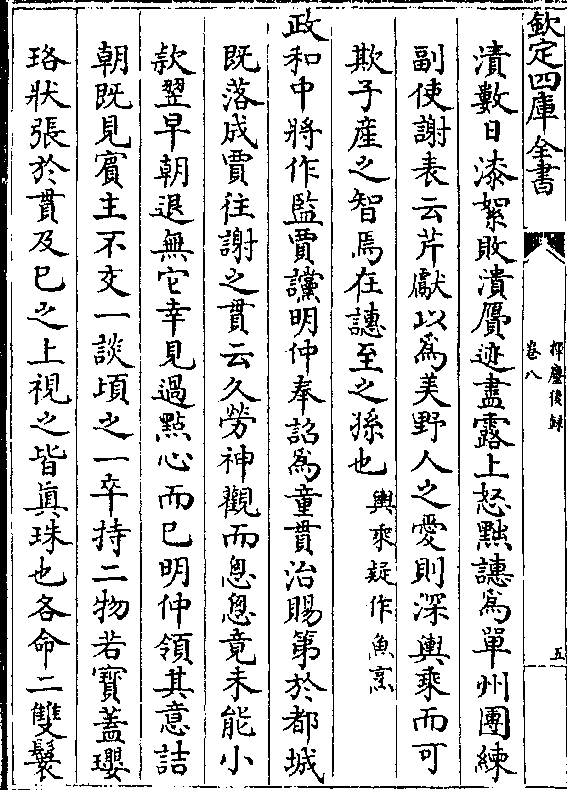 欽定四庫全書
揮麈後録
卷八
五
漬數日漆絮敗潰贗迹盡露上怒黜譓為單州團練
副使謝表云芹獻以為美野人之愛則深輿乘而可
欺子產之智焉在譓至之孫也輿乘疑作魚烹
政和中將作監賈讜明仲奉詔為童貫治賜第於都城
既落成賈往謝之貫云久勞神觀而怱怱竟未能小
款翌早朝退無它幸見過點心而已明仲領其意詰
朝既見賓主不交一談頃之一卒持二物若寶蓋瓔
珞狀張於貫及已之上視之皆真珠也各命二雙鬟